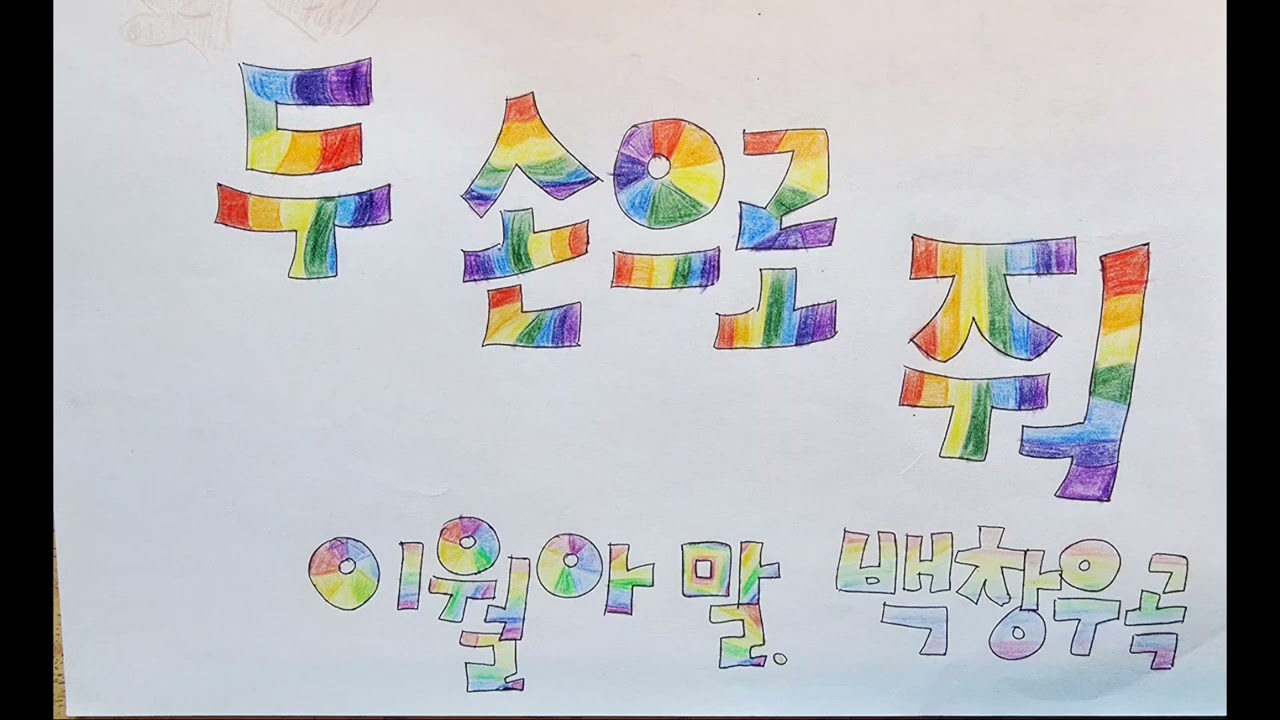 두 손으로 줘
이월아 말. 백창우곡